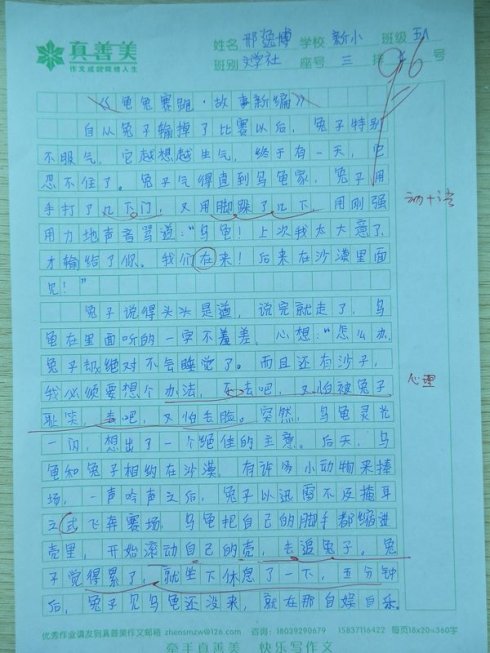 真善美
作文成就炫糖人生
姓名 邢逸博 学校 新小 班级 五八
班别 文学社 座号 三 排 号
96
《龟兔赛跑·故事新编》
自从兔子输掉了比赛以后，兔子特别
不服气，它越想越生气，终于有一天，它
忍不住了。兔子气得直到乌龟家，兔子用
手打了几下门，又用脚跺了几下，用刚强
用力地声音骂道：“乌龟！上次我太大意了，
才输给了你。我们在来！后来在沙漠里面
见！”
兔子说得头头是道，说完就走了，乌
龟在里面听的一字不差差，心想：“怎么办，
兔子却绝对不会睡觉了。而且还有沙子，
我必须要想个办法，不去吧，又怕被兔子
耻笑，去吧，又怕丢脸。突然，乌龟灵光
一闪，想出了一个绝佳的主意。后天，乌
龟和兔子相约在沙漠。有许多小动物来捧
场，一声哨声之后，兔子以迅雷不及掩耳
之式飞奔赛场，乌龟把自己的脚手都缩进
壳里，开始滚动自己的壳，去追兔子。兔
子觉得累了，就坐下休息了一下，五分钟
后，兔子见乌龟还没来，就在那自娱自乐。
动+语
心理
优秀作业请发到真善美作文邮箱 zhensmzw@126.com 咨询：18039290679 15837116422 每页18x20=360字
牵手真善美 快乐写作文